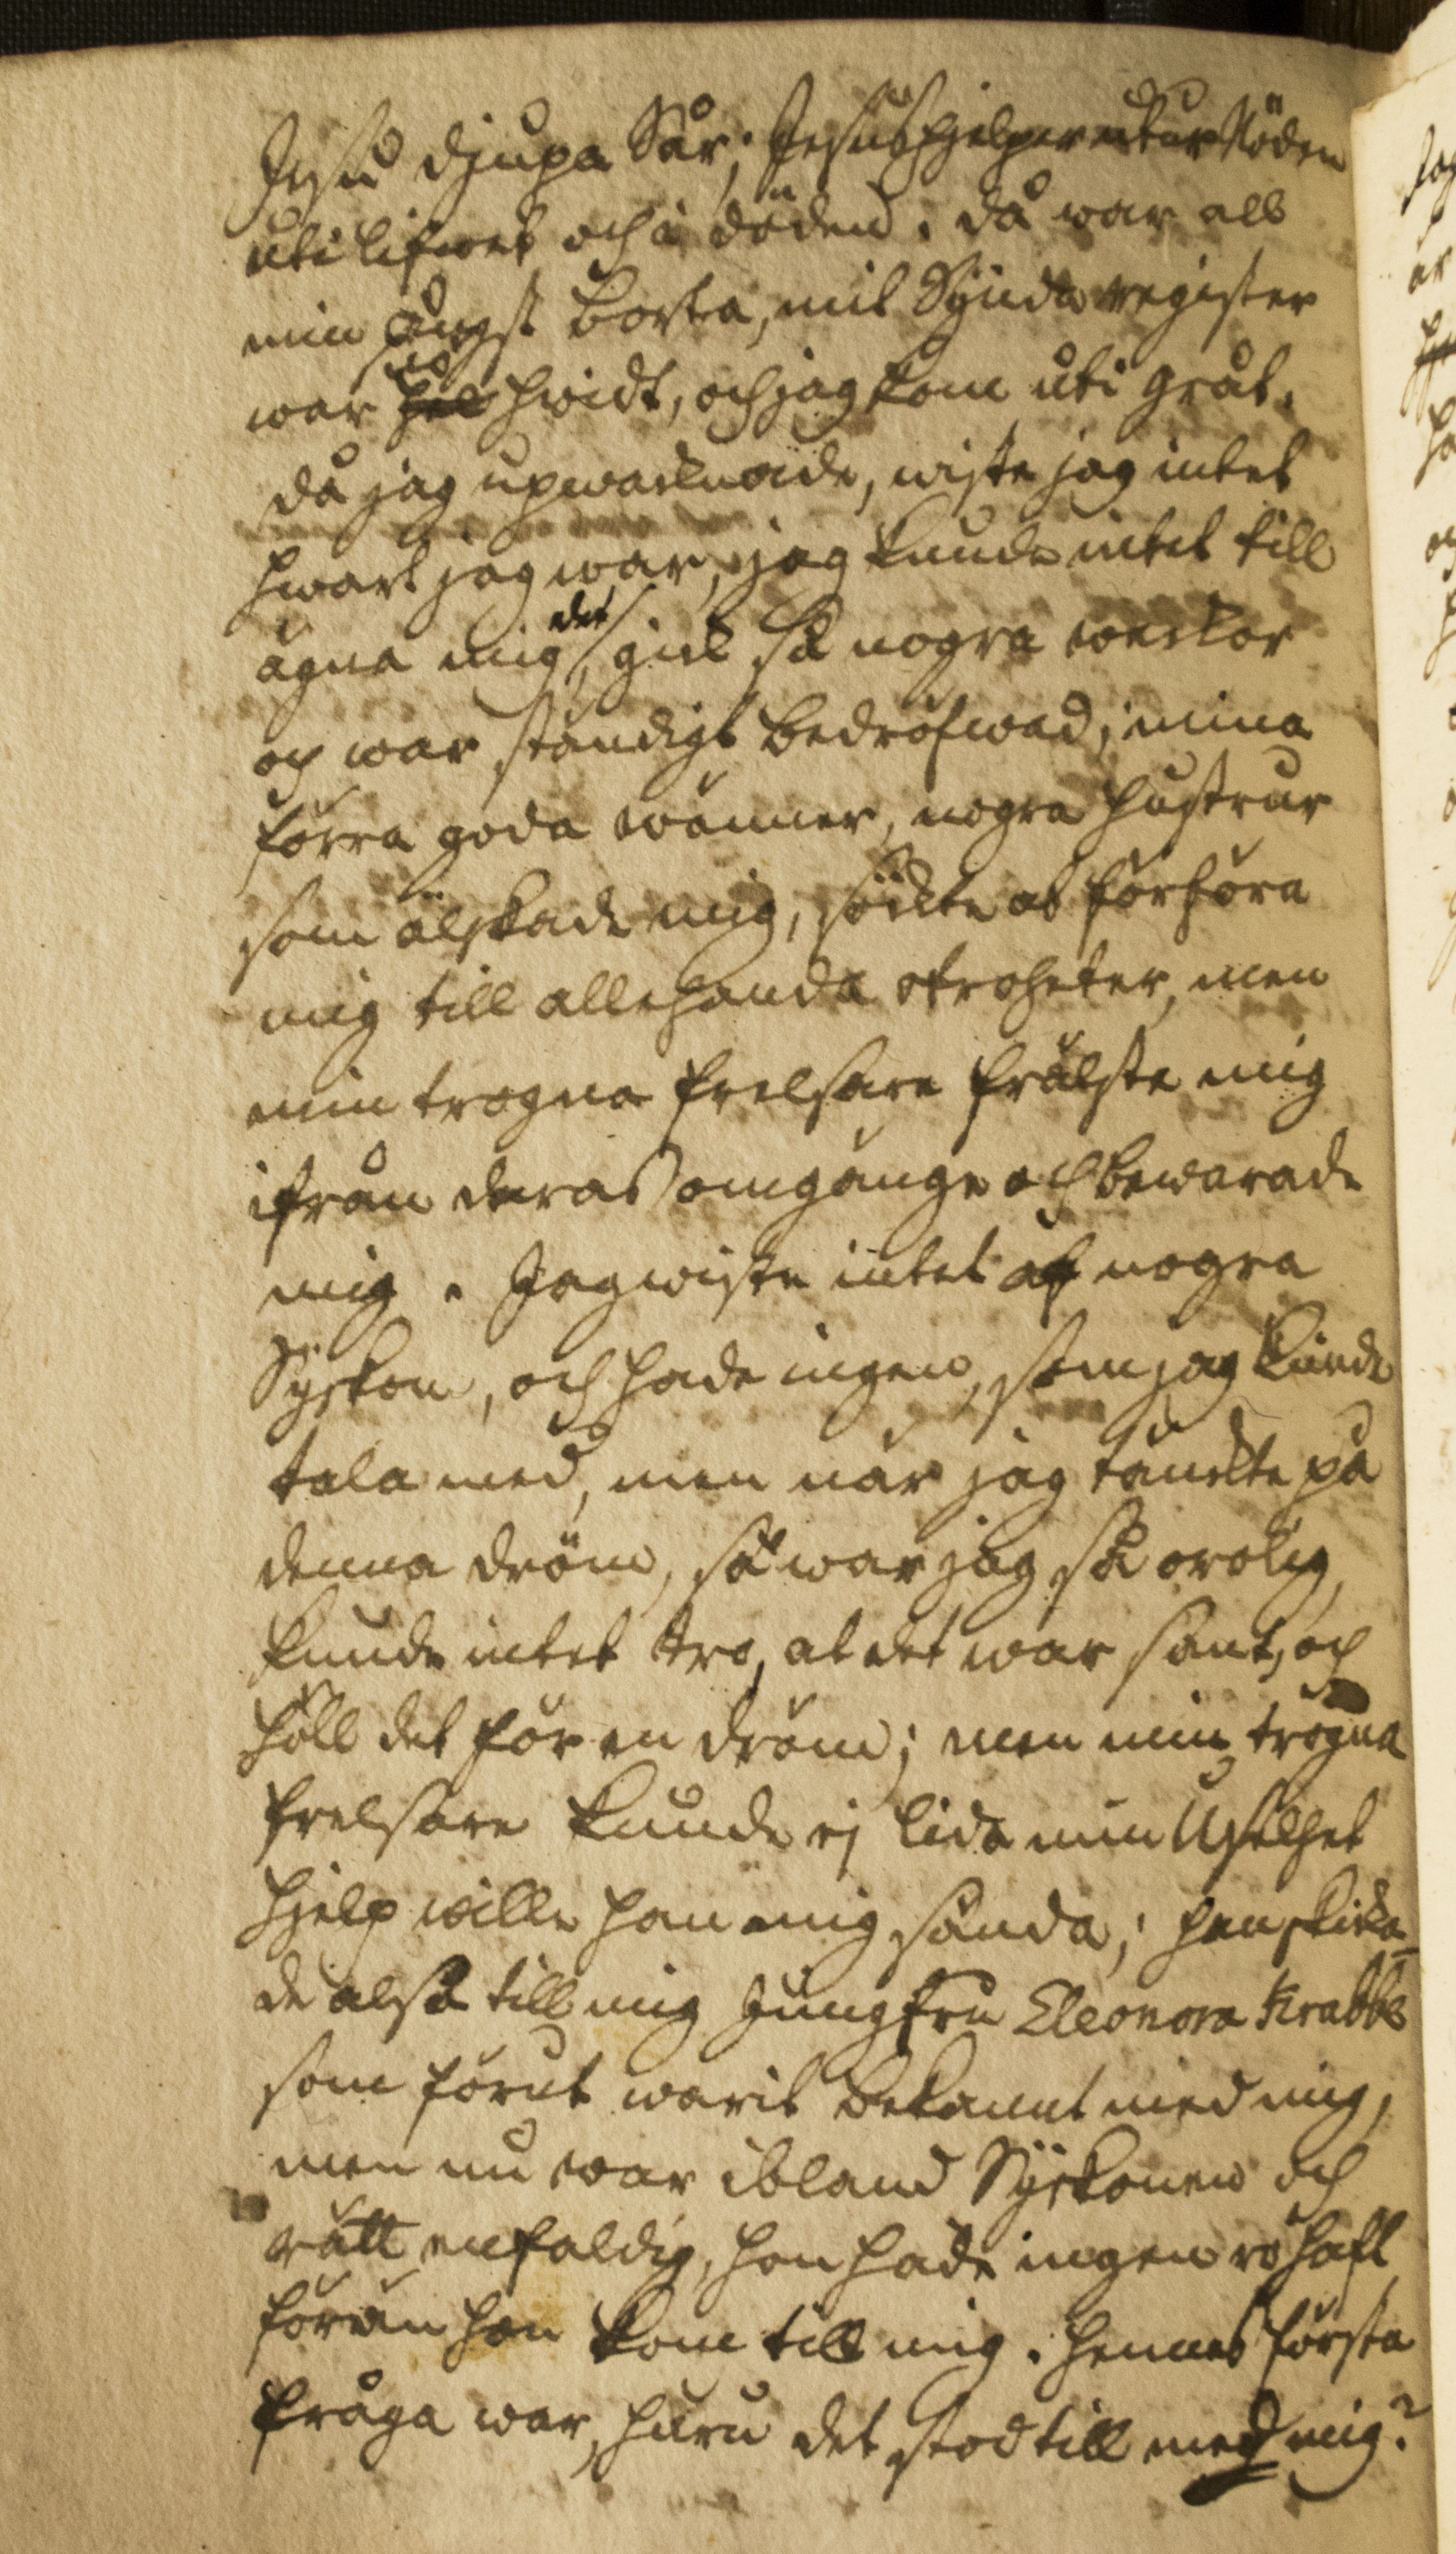 Jesu djupa Sår; Jesus hjelper utur Nöden
uti lifwet och i döden. då war all
min ångst borta, mit Synda register
war hwidt, och jag kom uti gråt.
då jag upwaknade, wiste jag intet
hwart jag war, jag kunde intet till
ägna mig det, gick så nogra weckor
och war ständigt bedröfwad; mina
förra goda wänner, nogra hustrur
som älskade mig, sökte at förföra
mig till allehanda otroheter, men
min trogna frelsare frälste mig
ifrån deras omgänge och bewarade
mig. Jag wiste intet af nogra
Syskon, och hade ingen, som jag kunde
tala med, men när jag tänckte på
denna dröm, så war jag så orolig,
kunde intet tro, at det war sant, och
höll det för en dröm; men min trogna
frelsare kunde ej lida min Uselhet
hjelp wille han mig sända; han skicka-
de alså till mig Jungfru Eleonora Krabbe
som förut warit bekannt med mig,
men nu war ibland Syskonen och
rätt enfaldig, hon hade ingen ro haft
förän hon kom till mig. Hennes första
fråga war, huru det stod till med mig?